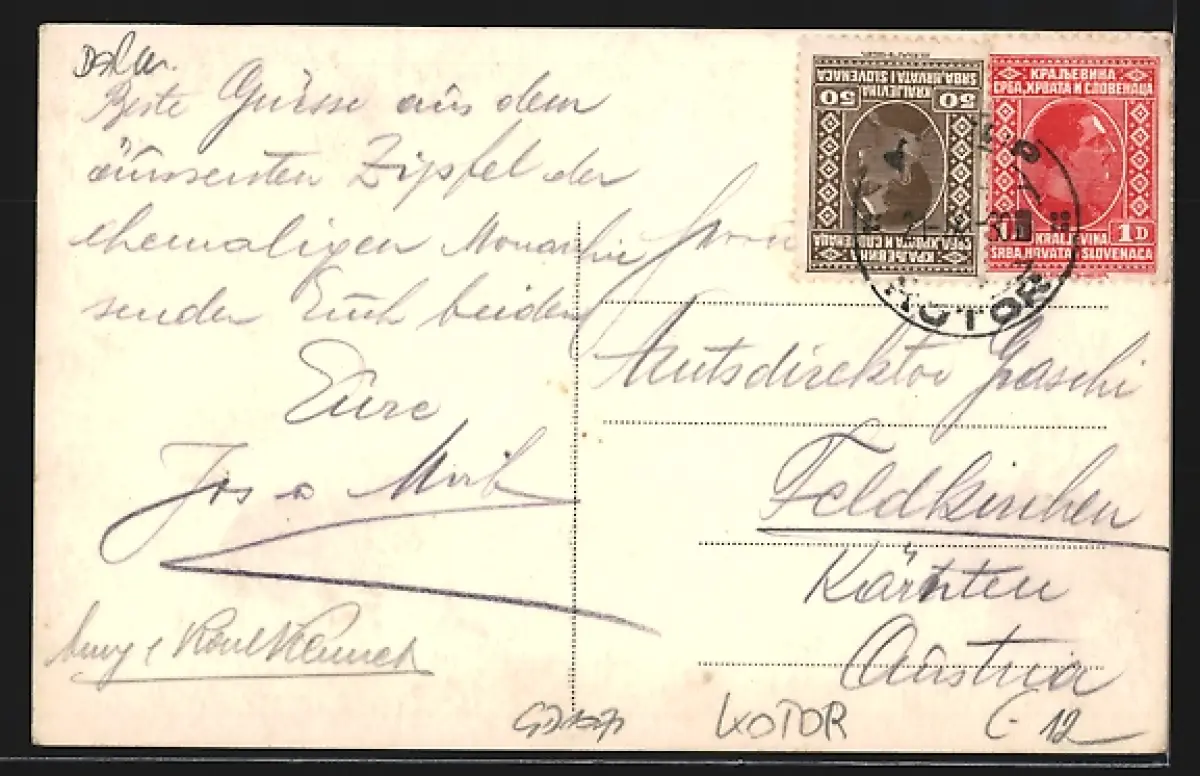 Beste Grüsse aus dem
äussersten Zipfel der
ehemaligen Monarchie
senden Euch beiden
Eure
Jos
KRALJEVINA
SRBA, HRVATA I SLOVENACA
50 50
КРАЉЕВИНА
СРБА, ХРВАТА И СЛОВЕНАЦА
КРАЉЕВИНА
СРБА, ХРВАТА И СЛОВЕНАЦА
1 D
KRALJEVINA
SRBA, HRVATA I SLOVENACA
KOTOR
Amtsdirektor
Feldkirchen
Kärnten
Austria
KOTOR
12